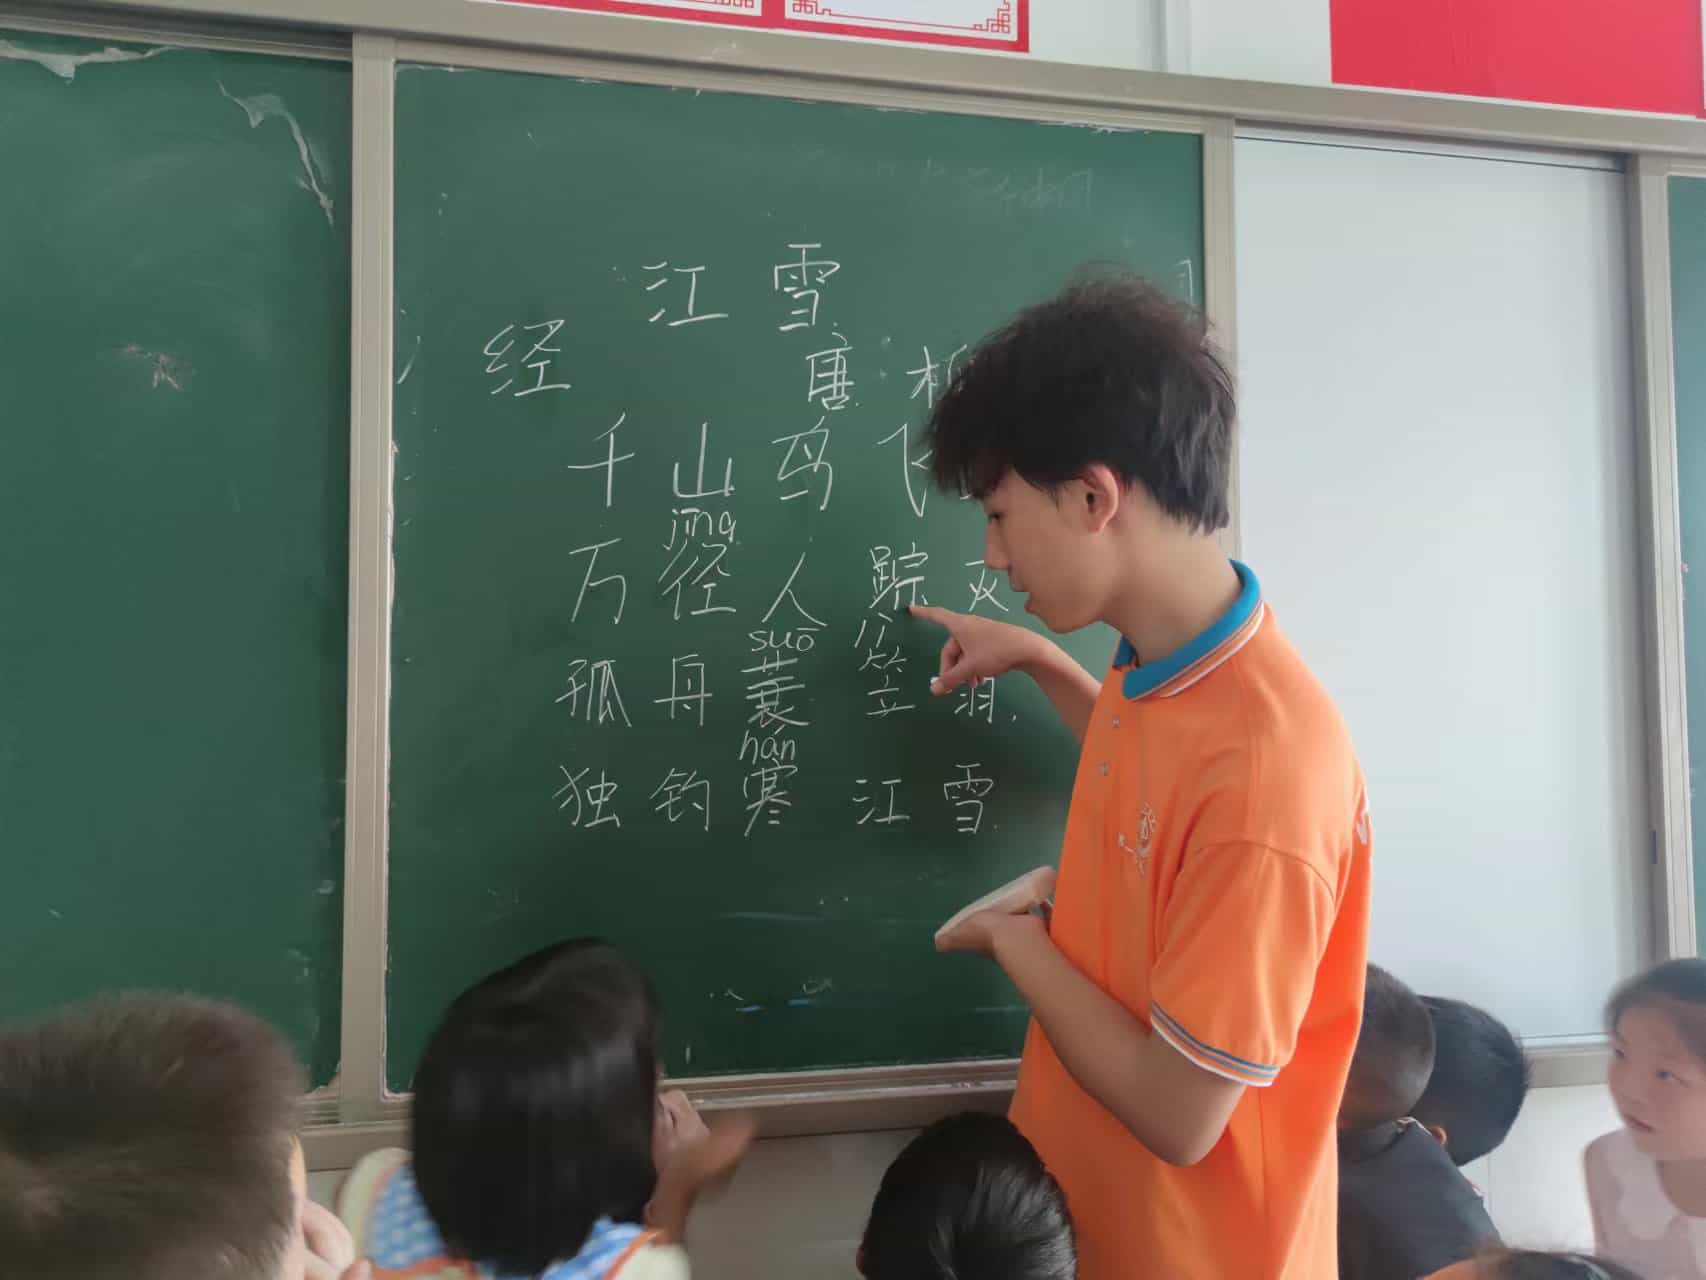 江雪
经
唐·
千山鸟飞
jing
万径人踪灭
suō
孤舟蓑笠翁,
hán
独钓寒江雪.